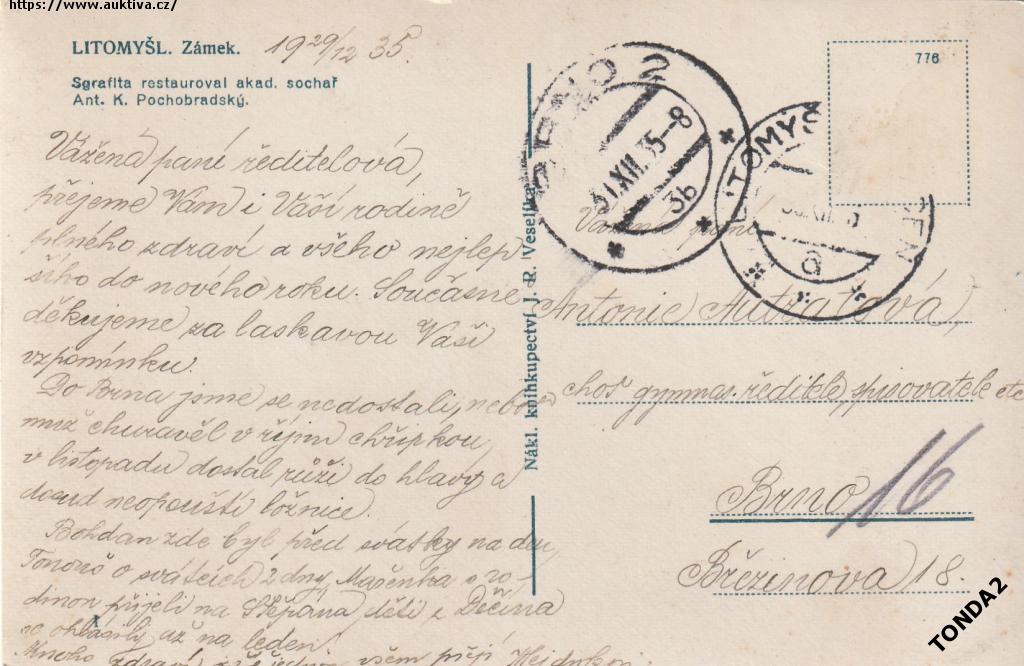 https://www.auktiva.cz/
LITOMYŠL. Zámek. 19 29/12 35.
Sgrafita restauroval akad. sochař
Ant. K. Pochobradský.
Vážená paní ředitelová,
přejeme Vám i Vaší rodině
plného zdraví a všeho nejlep
šího do nového roku. Současně
děkujeme za laskavou Vaši
vzpomínku.
Do Brna jsme se nedostali, neboť
muž churavěl v říjnu chřipkou,
v listopadu dostal růži do hlavy a
dosud neopouští ložnice.
Bohdan zde byl před svátky na den,
Tonouš o svátcích 2 dny, Mařenka s ro-
dinou přijeli na Štěpána, děti z Děčína
se ohlásily až na leden.
Mnoho zdraví všem přejí
Nákl. knihkupectví J. R. Veselíka
776
BRNO 2
31.XII.35-8
3b
LITOMYŠL
a
Vážená paní
Antonie
choť gymnas. ředitele, spisovatele etc
Brno 16
Březinova 18.
TONDA2